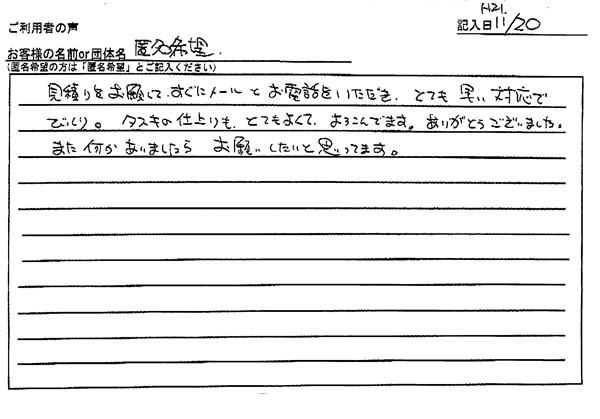 ご利用者の声
H21.
記入日 11/20
お客様の名前or団体名 匿名希望.
(匿名希望の方は「匿名希望」とご記入ください)
見積りをお願して、すぐにメールとお電話をいただき、とても早い対応で
びっくり。タスキの仕上りも、とてもよくて、よろこんでます。ありがとうございました。
また何かありましたら お願いしたいと思ってます。